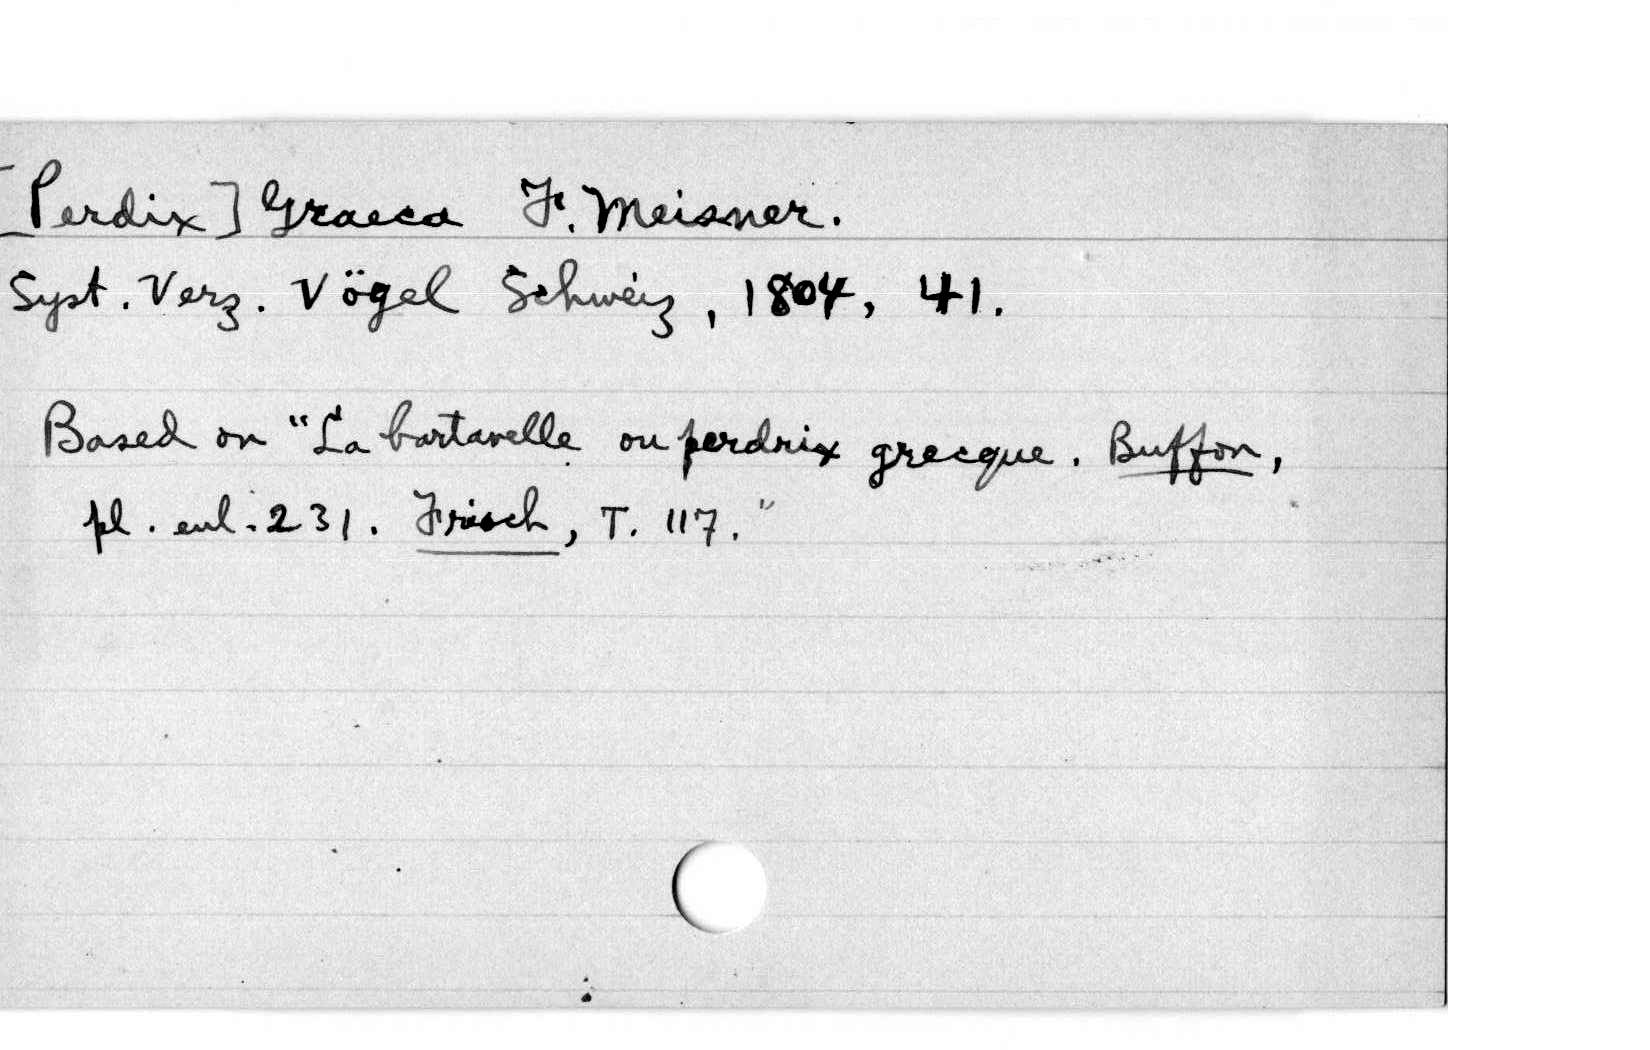 [Perdix] Graeca F. Meisner.
Syst. Verz. Vögel Schweiz, 1804, 41.
Based on "La bartavelle ou perdrix grecque. Buffon,
pl. enl. 231. Frisch, T. 117."